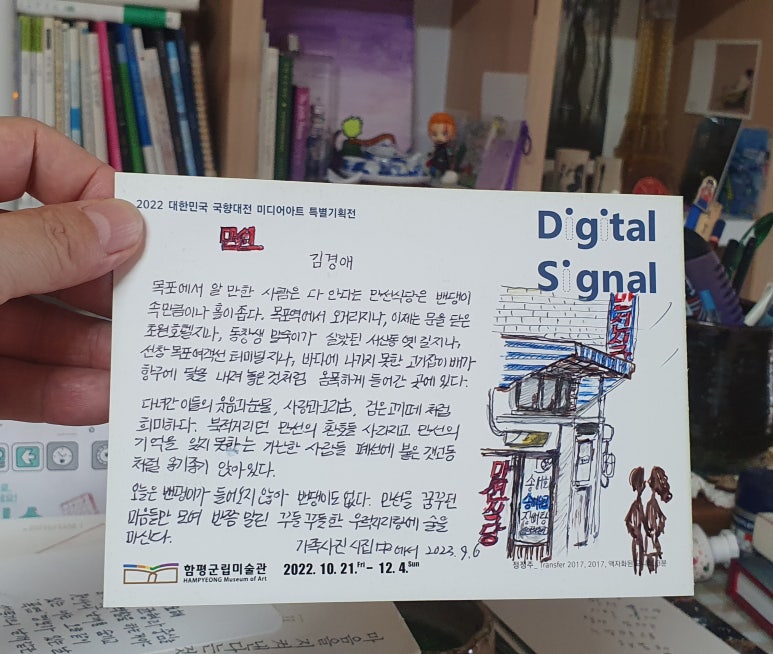 2022 대한민국 국향대전 미디어아트 특별기획전
Digital
Signal
만선
김경애
목포에서 알 만한 사람은 다 안다는 만선식당은 밴댕이
속 만큼이나 홀이 좁다. 목포역에서 오거리지나, 이제는 문을 닫은
초원호텔지나, 동창생 말숙이가 살았던 서산동 옛 길지나,
선창 목포여객선 터미널지나, 바다에 나가지 못한 고기잡이 배가
항구에 닻을 내려 놓은 것처럼 옴폭하게 들어간 곳에 있다.
다녀간 이들의 웃음과 눈물, 사랑과 그리움, 검은 고기떼 처럼
희미하다. 북적거리던 만선의 환호들 사라지고 만선의
기억을 잊지 못하는 가난한 사람들 폐선에 붙은 갯고동
처럼 옹기종기 앉아 있다.
오늘은 밴댕이가 들어오지 않아 밴댕이도 없다. 만선을 꿈꾸던
마음들만 모여 반쯤 말린 꾸들꾸들한 우럭찌리탕에 술을
마신다.
가족사진 시집 中에서 2023. 9. 6
만선식당
함평군립미술관
HAMPYEONG Museum of Art
2022. 10. 21.Fri – 12. 4.Sun
정정주_ Transfer 2017, 2017,